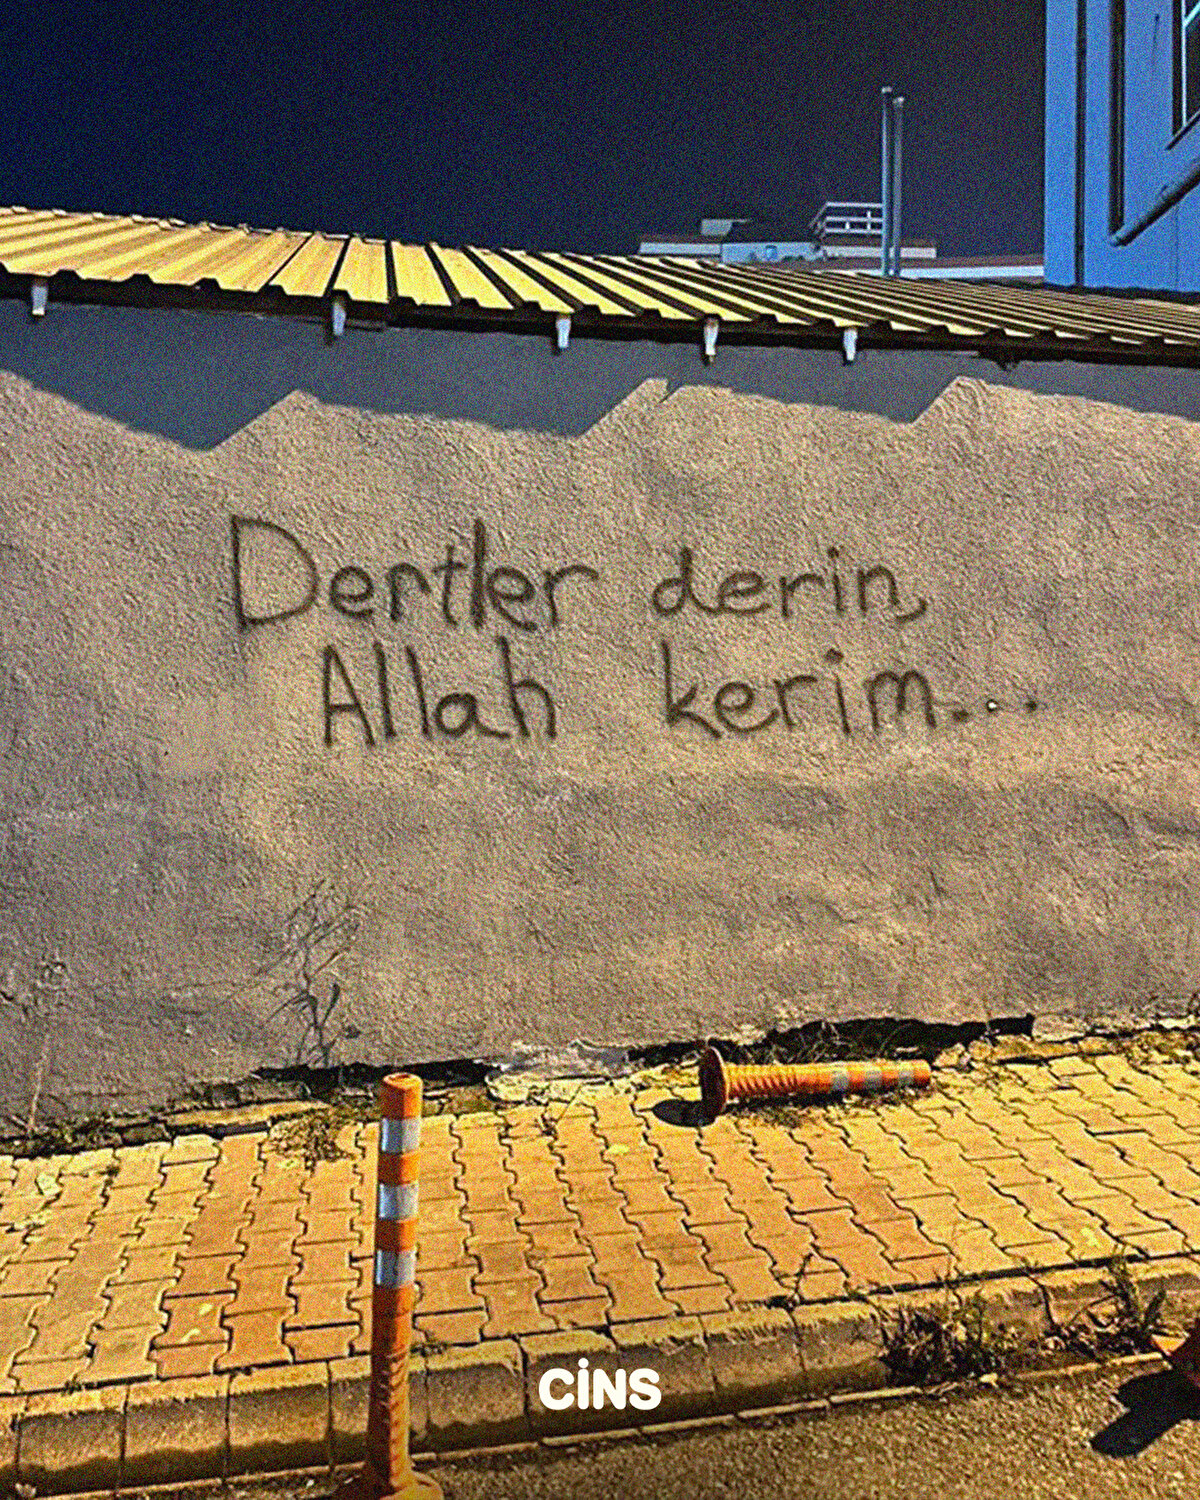 Dertler derin,
Allah kerim...
CİNS